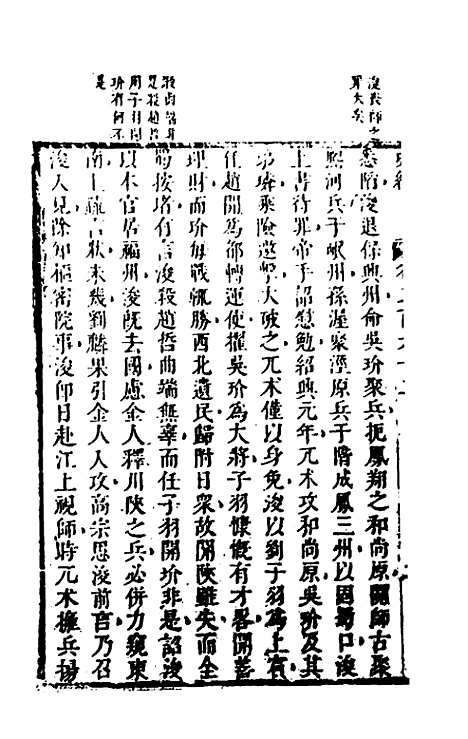 浚喪師之
罪大矣
殺曲端并
是殺趙哲
用子羽開
玠有何不
是
悉陷浚退保興州命吳玠聚兵扼鳳翔之和尚原關師古聚
熙河兵于岷州孫渥聚涇原兵于階成鳳三州以固蜀口浚
上書待罪帝手詔慰勉紹興元年兀术攻和尚原吳玠及其
弟璘乘險邀擊大破之兀术僅以身免浚以劉子羽為上賓
任趙開為都轉運使擢吳玠為大將子羽慷慨有才畧開善
理財而玠每戰輒勝西北遺民歸附日衆故關陝雖失而全
蜀按堵有言浚殺趙哲曲端無辜而任子羽開玠非是詔浚
以本官居福州浚旣去國慮金人釋川陝之兵必併力窺東
南上疏言狀未幾劉麟果引金人入攻高宗思浚前言乃召
浚入見除知樞密院事浚即日赴江上視師時兀术擁兵揚